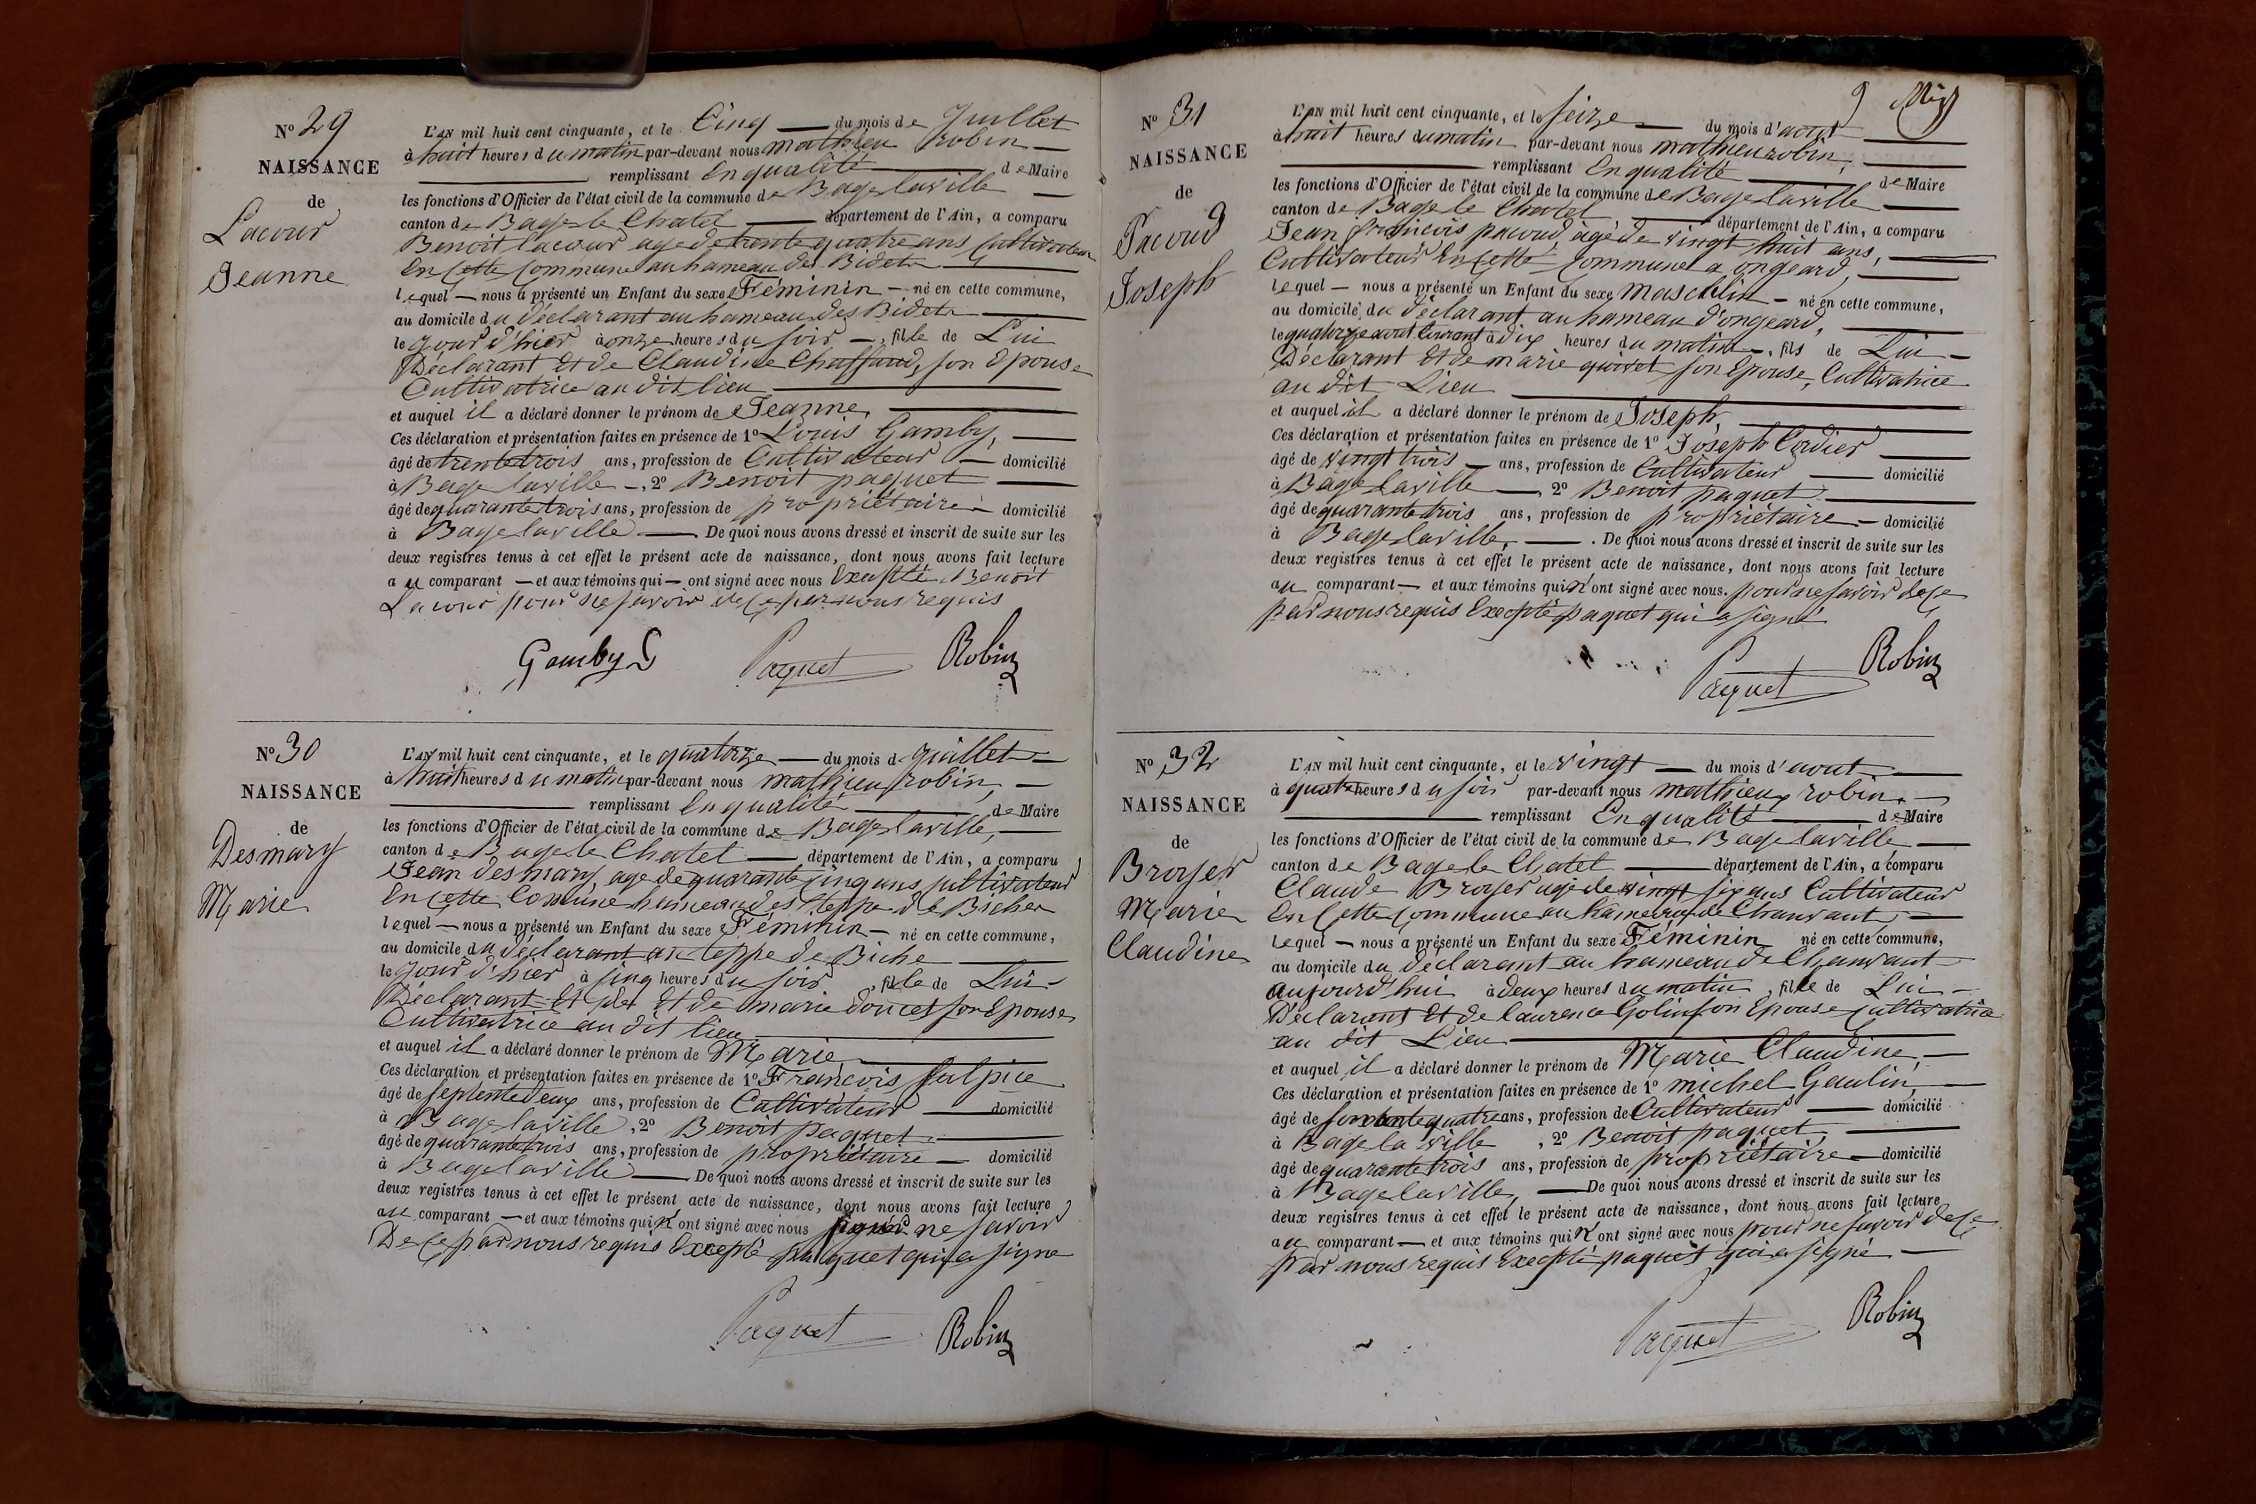 N° 29
NAISSANCE
de
Lacour
Jeanne
L'AN mil huit cent cinquante, et le Cinq du mois de Juillet
à huit heures du matin par-devant nous mathieu robin
remplissant En qualité de Maire
les fonctions d'Officier de l'état civil de la commune de Bagelaville
canton de Bage le Chatel département de l'Ain, a comparu
Benoit Lacour agé de trente quatre ans Cultivateur
En Cette Commune au hameau des Bidets
lequel nous a présenté un Enfant du sexe Féminin né en cette commune,
au domicile du déclarant au hameau des Bidets
le jour d'hier à onze heures du soir, fille de Lui
Déclarant Et de Claudine Chaffaud, son Epouse
Cultivatrice au dit lieu
et auquel il a déclaré donner le prénom de Jeanne,
Ces déclaration et présentation faites en présence de 1° Louis Gamby,
âgé de trente trois ans, profession de Cultivateur domicilié
à Bage laville, 2° Benoit paquet
âgé de quarante trois ans, profession de propriétaire domicilié
à Bagelaville De quoi nous avons dressé et inscrit de suite sur les
deux registres tenus à cet effet le présent acte de naissance, dont nous avons fait lecture
au comparant et aux témoins qui ont signé avec nous Excepté Benoit
Lacour pour ne savoir de Ce par nous requis
Gamby Paquet Robin
N° 30
NAISSANCE
de
Desmary
Marie
L'AN mil huit cent cinquante, et le quatorze du mois de juillet
à huit heures du matin par-devant nous mathieu robin,
remplissant En qualité de Maire
les fonctions d'Officier de l'état civil de la commune de Bagelaville,
canton de Bage le Chatel département de l'Ain, a comparu
Jean desmary, age de quarante cinq ans, cultivateur
En Cette Comune hameau des teppe de Biche
lequel nous a présenté un Enfant du sexe Féminin né en cette commune,
au domicile du déclarant au teppe de Biche
le jour d'hier à cinq heures du soir, fille de Lui
Déclarant Et de Et de marie doucet son Epouse
Cultivatrice au dit lieu
et auquel il a déclaré donner le prénom de Marie
Ces déclaration et présentation faites en présence de 1° François Sulpice
âgé de septente deux ans, profession de Cultivateur domicilié
à Bagelaville, 2° Benoit paquet
âgé de quarante trois ans, profession de propriétaire domicilié
à Bagelaville De quoi nous avons dressé et inscrit de suite sur les
deux registres tenus à cet effet le présent acte de naissance, dont nous avons fait lecture
au comparant et aux témoins qui n'ont signé avec nous pour ne savoir
De Ce par nous requis Excepté paquet qui a signe
Paquet Robin
9
N° 31
NAISSANCE
de
Pacoud
Joseph
L'AN mil huit cent cinquante, et le seize du mois d'aout
à huit heures du matin par-devant nous mathieu robin,
remplissant En qualité de Maire
les fonctions d'Officier de l'état civil de la commune de Bagelaville
canton de Bage le Chatel, département de l'Ain, a comparu
Jean françois pacoud, àgé de vingt huit ans,
Cultivateur En Cette Commune a ongeard,
lequel nous a présenté un Enfant du sexe masculin né en cette commune,
au domicile du déclarant au hameau d'ongeard,
le quatorze aout Courant à dix heures du matin, fils de Lui
Déclarant Et de marie quivet son Epouse, Cultivatrice
au dit Lieu
et auquel il a déclaré donner le prénom de Joseph,
Ces déclaration et présentation faites en présence de 1° Joseph Cordier
âgé de vingt trois ans, profession de Cultivateur domicilié
à Bage laville 2° Benoit paquet
âgé de quarante trois ans, profession de propriétaire domicilié
à Bagelaville, . De quoi nous avons dressé et inscrit de suite sur les
deux registres tenus à cet effet le présent acte de naissance, dont nous avons fait lecture
au comparant et aux témoins qui n'ont signé avec nous. pour ne savoir de Ce
par nous requis Excepté paquet qui a signé
Paquet Robin
N° 32
NAISSANCE
de
Broyer
Marie
Claudine
L'AN mil huit cent cinquante, et le vingt du mois d'aout
à quatre heures du soir par-devant nous mathieu robin,
remplissant En qualité de Maire
les fonctions d'Officier de l'état civil de la commune de Bagelaville
canton de Bage le Chatel département de l'Ain, a comparu
Claude Broyer agé de vingt six ans Cultivateur
En Cette Commune au hameau de Chanvant
lequel nous a présenté un Enfant du sexe Féminin né en cette commune,
au domicile du déclarant au hameau de Chanvant
aujourd'hui à deux heures du matin, fille de Lui
Déclarant Et de laurence Golin son Epouse Cultivatrice
au dit Lieu
et auquel il a déclaré donner le prénom de Marie Claudine,
Ces déclaration et présentation faites en présence de 1° michel Gaulin,
âgé de soixante quatre ans, profession de Cultivateur domicilié
à Bage la ville, 2° Benoit paquet,
âgé de quarante trois ans, profession de propriétaire domicilié
à Bagelaville, De quoi nous avons dressé et inscrit de suite sur les
deux registres tenus à cet effet le présent acte de naissance, dont nous avons fait lecture
au comparant et aux témoins qui n'ont signé avec nous pour ne savoir de Ce
par nous requis Excepté paquet qui a signé
Paquet Robin